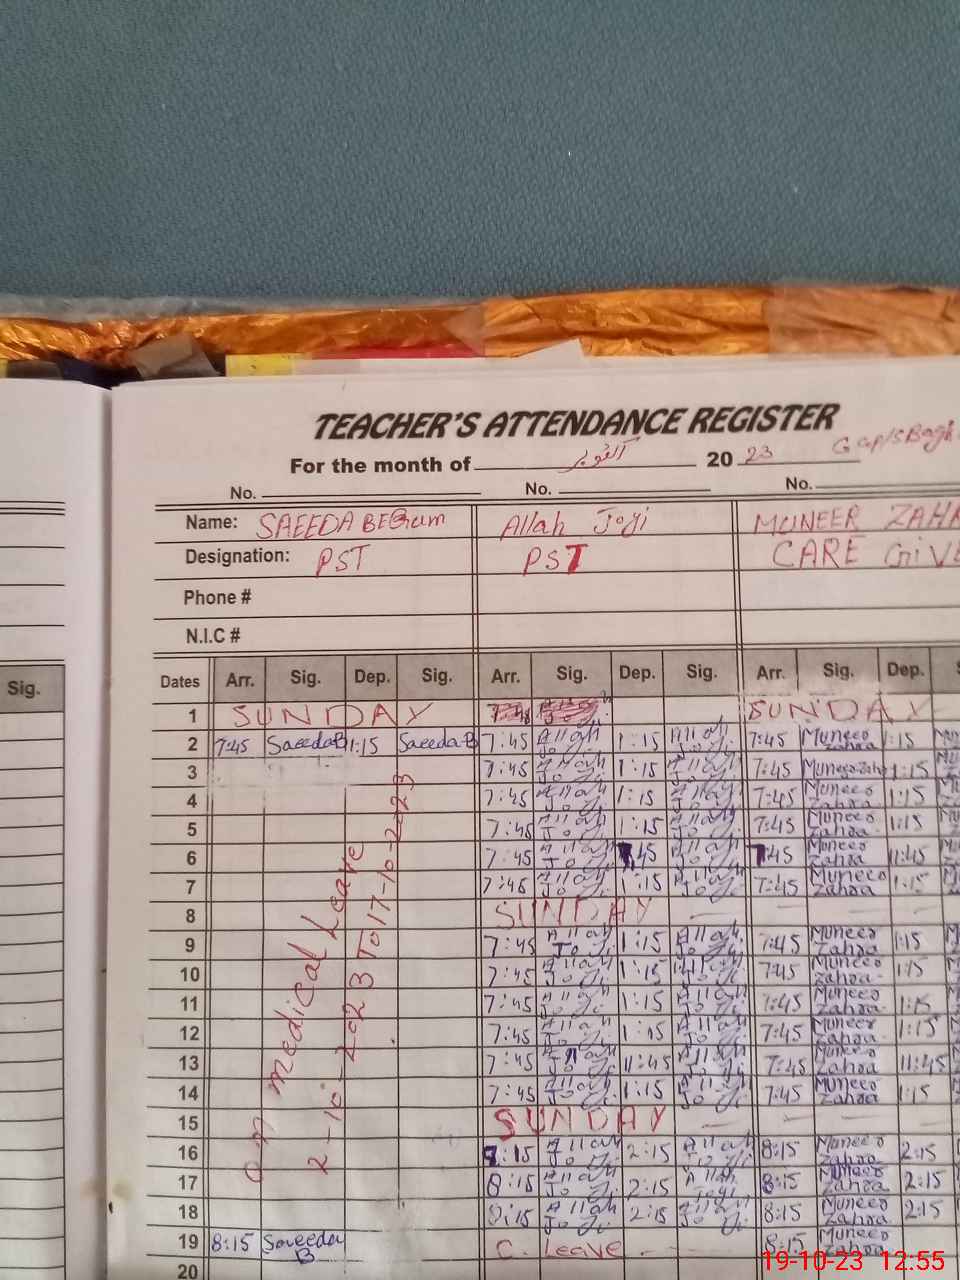 TEACHER'S ATTENDANCE REGISTER
For the month of اکتوبر 20 23
No. No. No.
Name: SAEEDA BEGum Allah Jogi MUNEER ZAHR
Designation: PST PST CARE GiVE
Phone #
N.I.C #
Sig. Dates Arr. Sig. Dep. Sig. Arr. Sig. Dep. Sig. Arr. Sig. Dep. S
1 SUNDAY SUNDAY
2 7:45 SaeedaB 1:15 Saeeda B 7:45 Allah 1:15 Allah 7:45 Muneer 1:15
Jogi Jogi Zahra
3 7:45 Allah 1:15 Allah 7:45 Muneer Zah 1:15
Jogi Jogi
4 7:45 Allah 1:15 Allah 7:45 Muneer 1:15
Jogi Jogi Zahra
5 7:45 Allah 1:15 Allah 7:45 Muneer 1:15
Jogi Jogi Zahra
6 7:45 Allah 45 Allah 7:45 Muneer 11:45
Jogi Jogi Zahra
7 7:45 Allah 1:15 Allah 7:45 Muneer 1:15
Jogi Jogi Zahra
8 SUNDAY
9 7:45 Allah 1:15 Allah 7:45 Muneer 1:15
Jogi Jogi Zahra
10 7:45 Allah 1:15 Allah 7:45 Muneer 1:15
Jogi Jogi Zahra
11 7:45 Allah 1:15 Allah 7:45 Muneer 1:15
Jogi Jogi Zahra
12 7:45 Allah 1:15 Allah 7:45 Muneer 1:15
Jogi Jogi Zahra
13 7:45 Allah 11:45 Allah 7:45 Muneer 11:45
Jogi Jogi Zahra
14 7:45 Allah 1:15 Allah 7:45 Muneer 1:15
Jogi Jogi Zahra
15 SUNDAY
16 8:15 Allah 2:15 Allah 8:15 Muneer 2:15
Jogi Jogi Zahra
17 8:15 Allah 2:15 Allah 8:15 Muneer 2:15
Jogi Jogi Zahra
18 8:15 Allah 2:15 Allah 8:15 Muneer 2:15
Jogi Jogi Zahra
19 8:15 Saeeda C. Leave 8:15 Muneer
B Zahra
20
on medical Leave
2-10-2023 To 17-10-2023
19-10-23 12:55